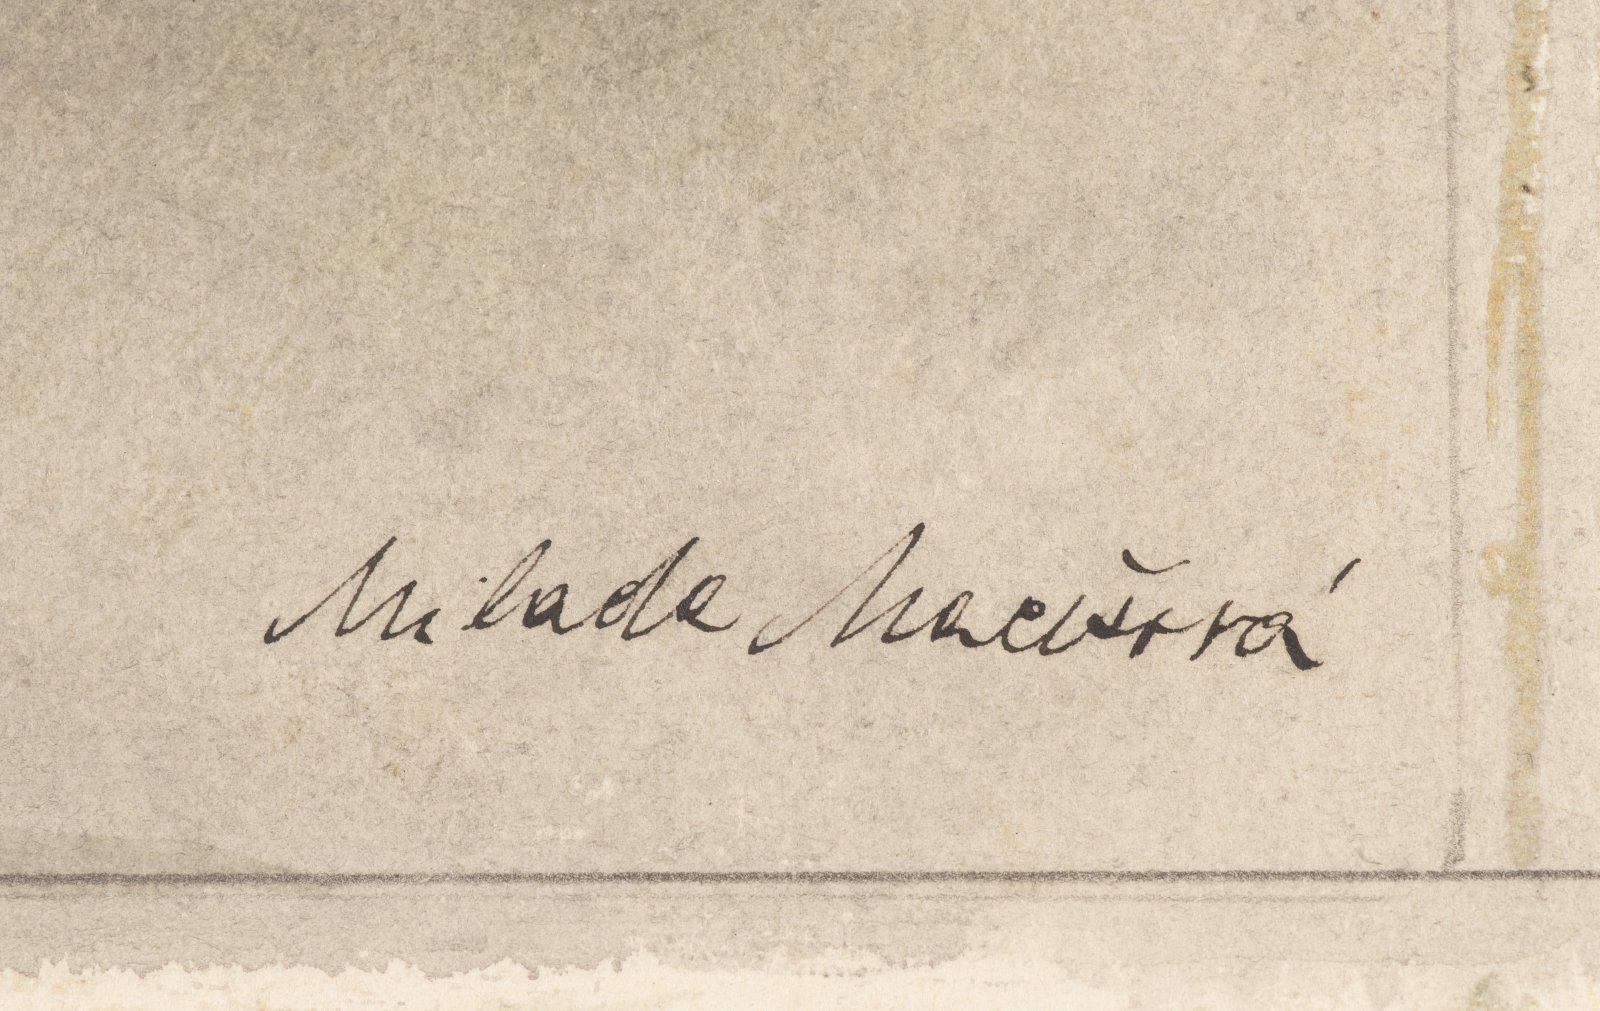 Milada Marešová